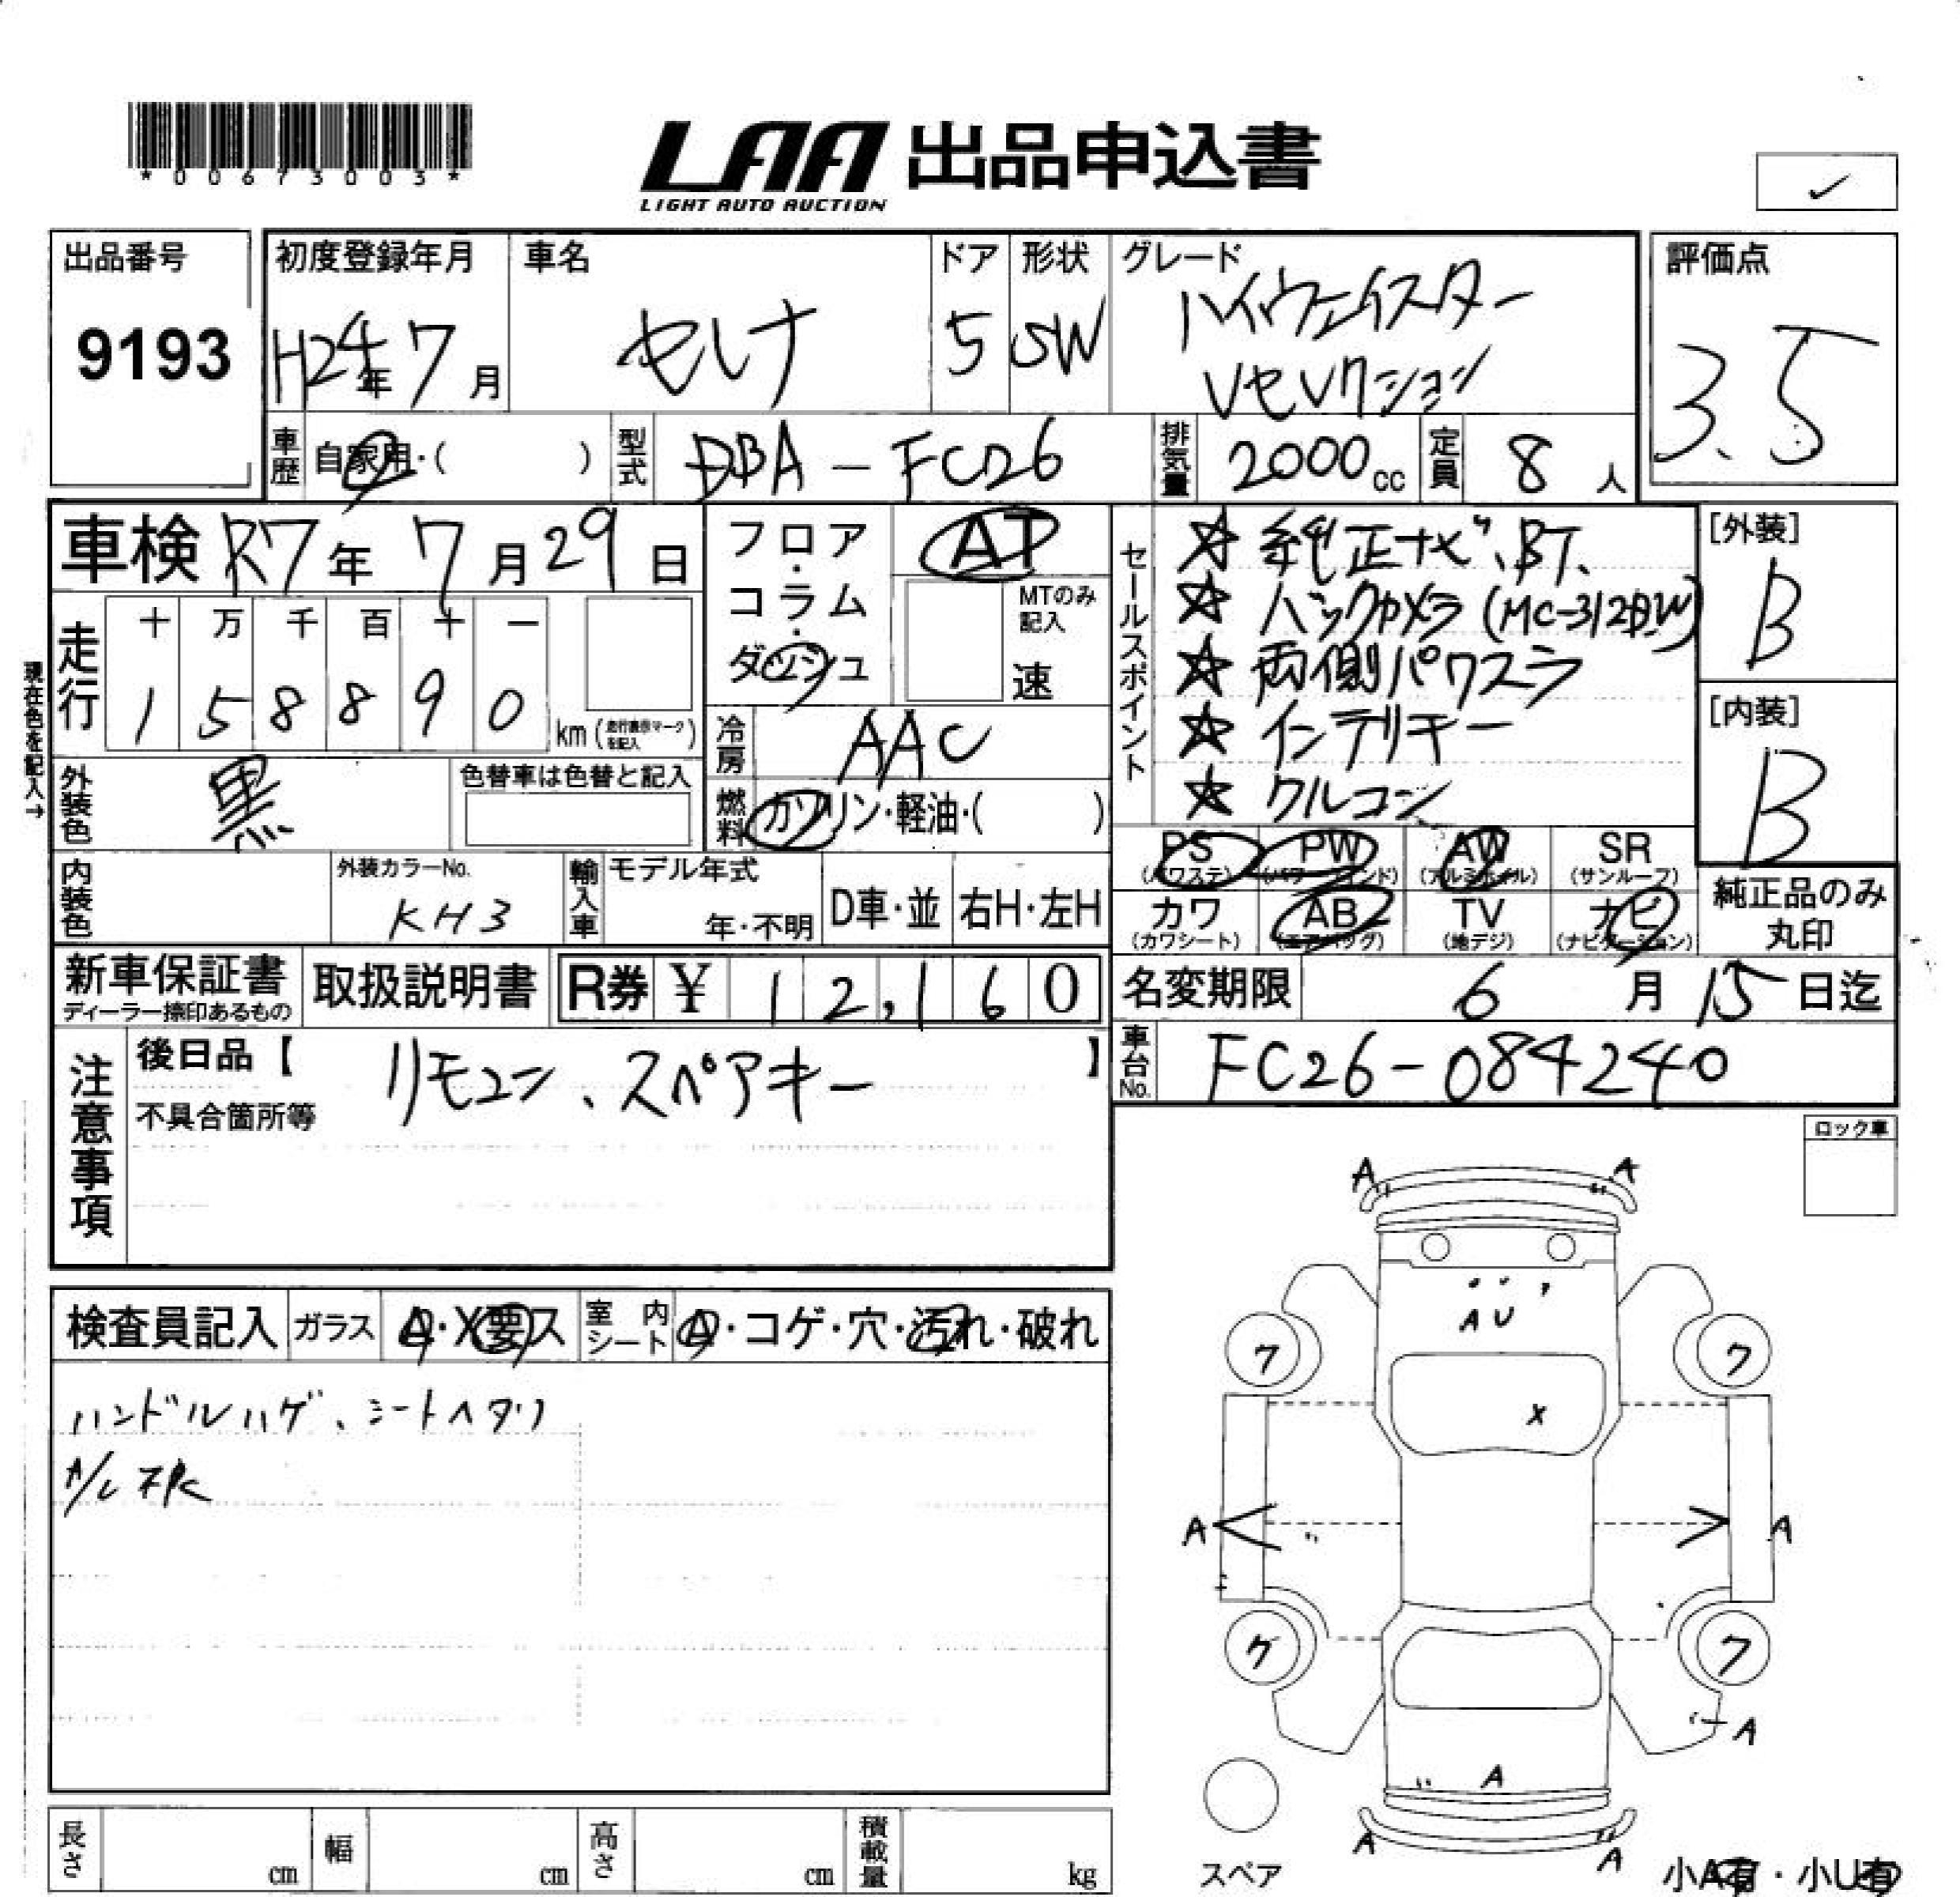 *00673003*
LAA 出品申込書
LIGHT AUTO AUCTION
出品番号
9193
初度登録年月
H24年7月
車名
セレナ
ドア
5
形状
SW
グレード
ハイウェイスター
Vセレクション
評価点
3.5
車歴
自家用・( )
型式
DBA-FC26
排気量
2000cc
定員
8人
車検 R7年7月29日
フロア・コラム・ダッシュ
AT
MTのみ記入
速
走行
十 万 千 百 十 一
1 5 8 8 9 0 km (走行表示マークを記入)
現在色を記入→
外装色
黒
色替車は色替と記入
冷房
AAC
燃料
ガソリン・軽油・( )
セールスポイント
☆ 純正ナビ、BT、
☆ バックカメラ (MC-312D.W)
☆ 両側パワスラ
☆ インテリキー
☆ クルコン
[外装]
B
[内装]
B
PS (パワステ)
PW (パワーウインド)
AW (アルミホイル)
SR (サンルーフ)
カワ (カワシート)
AB (エアバッグ)
TV (地デジ)
ナビ (ナビゲーション)
純正品のみ丸印
内装色
外装カラーNo.
KH3
輸入車
モデル年式
年・不明
D車・並
右H・左H
新車保証書
ディーラー捺印あるもの
取扱説明書
R券 ¥ 12,160
名変期限
6月15日迄
車台No.
FC26-084240
注意事項
後日品【 リモコン、スペアキー 】
不具合箇所等
ロック車
検査員記入
ガラス
A・X要ス
室内シート
A・コゲ・穴・汚れ・破れ
ハンドルハゲ、シートヘタリ
A A
A U
ワ ワ
X
A A
ワ ワ
A
A
A A
スペア
小A有・小U有
長さ cm
幅 cm
高さ cm
積載量 kg